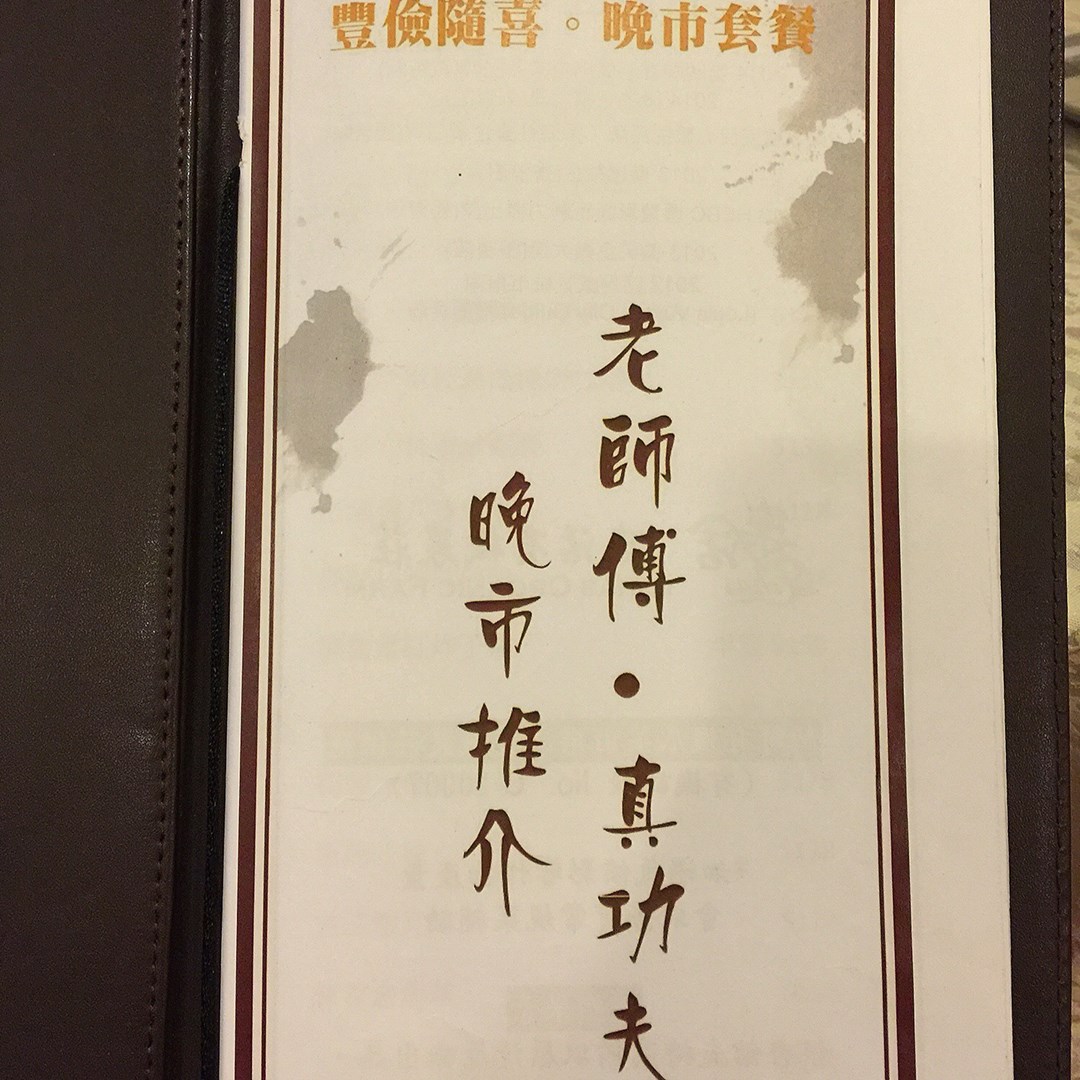 豐儉隨喜。晚市套餐
老師傅・真功夫
晚市推介